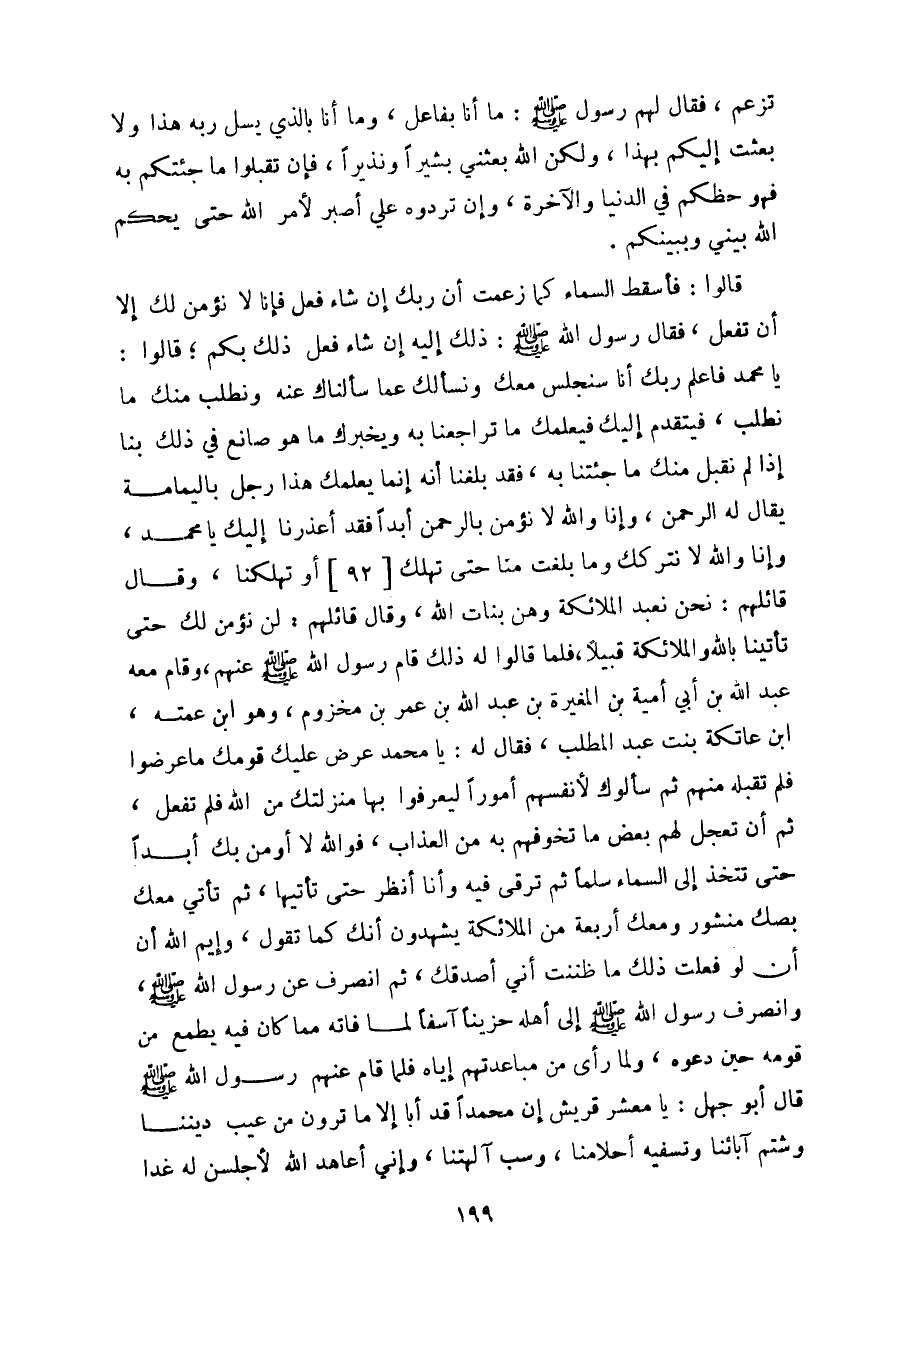 تزعم ، فقال لهم رسول ﷺ : ما أنا بفاعل ، وما أنا بالذي يسل ربه هذا ولا
بعثت إليكم بهذا ، ولكن الله بعثني بشيراً ونذيراً ، فإن تقبلوا ما جئتكم به
فهو حظكم في الدنيا والآخرة ، وإن تردوه علي أصبر لأمر الله حتى يحكم
الله بيني وبينكم .
قالوا : فأسقط السماء كما زعمت أن ربك إن شاء فعل فإنا لا نؤمن لك إلا
أن تفعل ، فقال رسول الله ﷺ : ذلك إليه إن شاء فعل ذلك بكم ؛ قالوا :
يا محمد فاعلم ربك أنا سنجلس معك ونسألك عما سألناك عنه ونطلب منك ما
نطلب ، فيتقدم إليك فيعلمك ما تراجعنا به ويخبرك ما هو صانع في ذلك بنا
إذا لم نقبل منك ما جئتنا به ، فقد بلغنا أنه إنما يعلمك هذا رجل باليمامة
يقال له الرحمن ، وإنا والله لا نؤمن بالرحمن أبداً فقد أعذرنا إليك يا محمد ،
وإنا والله لا نتركك وما بلغت منّا حتى تهلك [ ٩٢ ] أو تهلكنا ، وقال
قائلهم : نحن نعبد الملائكة وهن بنات الله ، وقال قائلهم : لن نؤمن لك حتى
تأتينا بالله والملائكة قبيلاً ، فلما قالوا له ذلك قام رسول الله ﷺ عنهم ، وقام معه
عبد الله بن أبي أمية بن المغيرة بن عبد الله بن عمر بن مخزوم ، وهو ابن عمته ،
ابن عاتكة بنت عبد المطلب ، فقال له : يا محمد عرض عليك قومك ما عرضوا
فلم تقبله منهم ثم سألوك لأنفسهم أموراً ليعرفوا بها منزلتك من الله فلم تفعل ،
ثم أن تعجل لهم بعض ما تخوفهم به من العذاب ، فوالله لا أومن بك أبداً
حتى تتخذ إلى السماء سلماً ثم ترقى فيه وأنا أنظر حتى تأتيها ، ثم تأتي معك
بصك منشور ومعك أربعة من الملائكة يشهدون أنك كما تقول ، وإيم الله أن
أن لو فعلت ذلك ما ظننت أني أصدقك ، ثم انصرف عن رسول الله ﷺ ،
وانصرف رسول الله ﷺ إلى أهله حزيناً آسفاً لما فاته مما كان فيه يطمع من
قومه حين دعوه ، ولما رأى من مباعدتهم إياه فلما قام عنهم رسول الله ﷺ
قال أبو جهل : يا معشر قريش إن محمداً قد أبا إلا ما ترون من عيب ديننا
وشتم آبائنا وتسفيه أحلامنا ، وسب آلهتنا ، وإني أعاهد الله لأجلسن له غدا
١٩٩